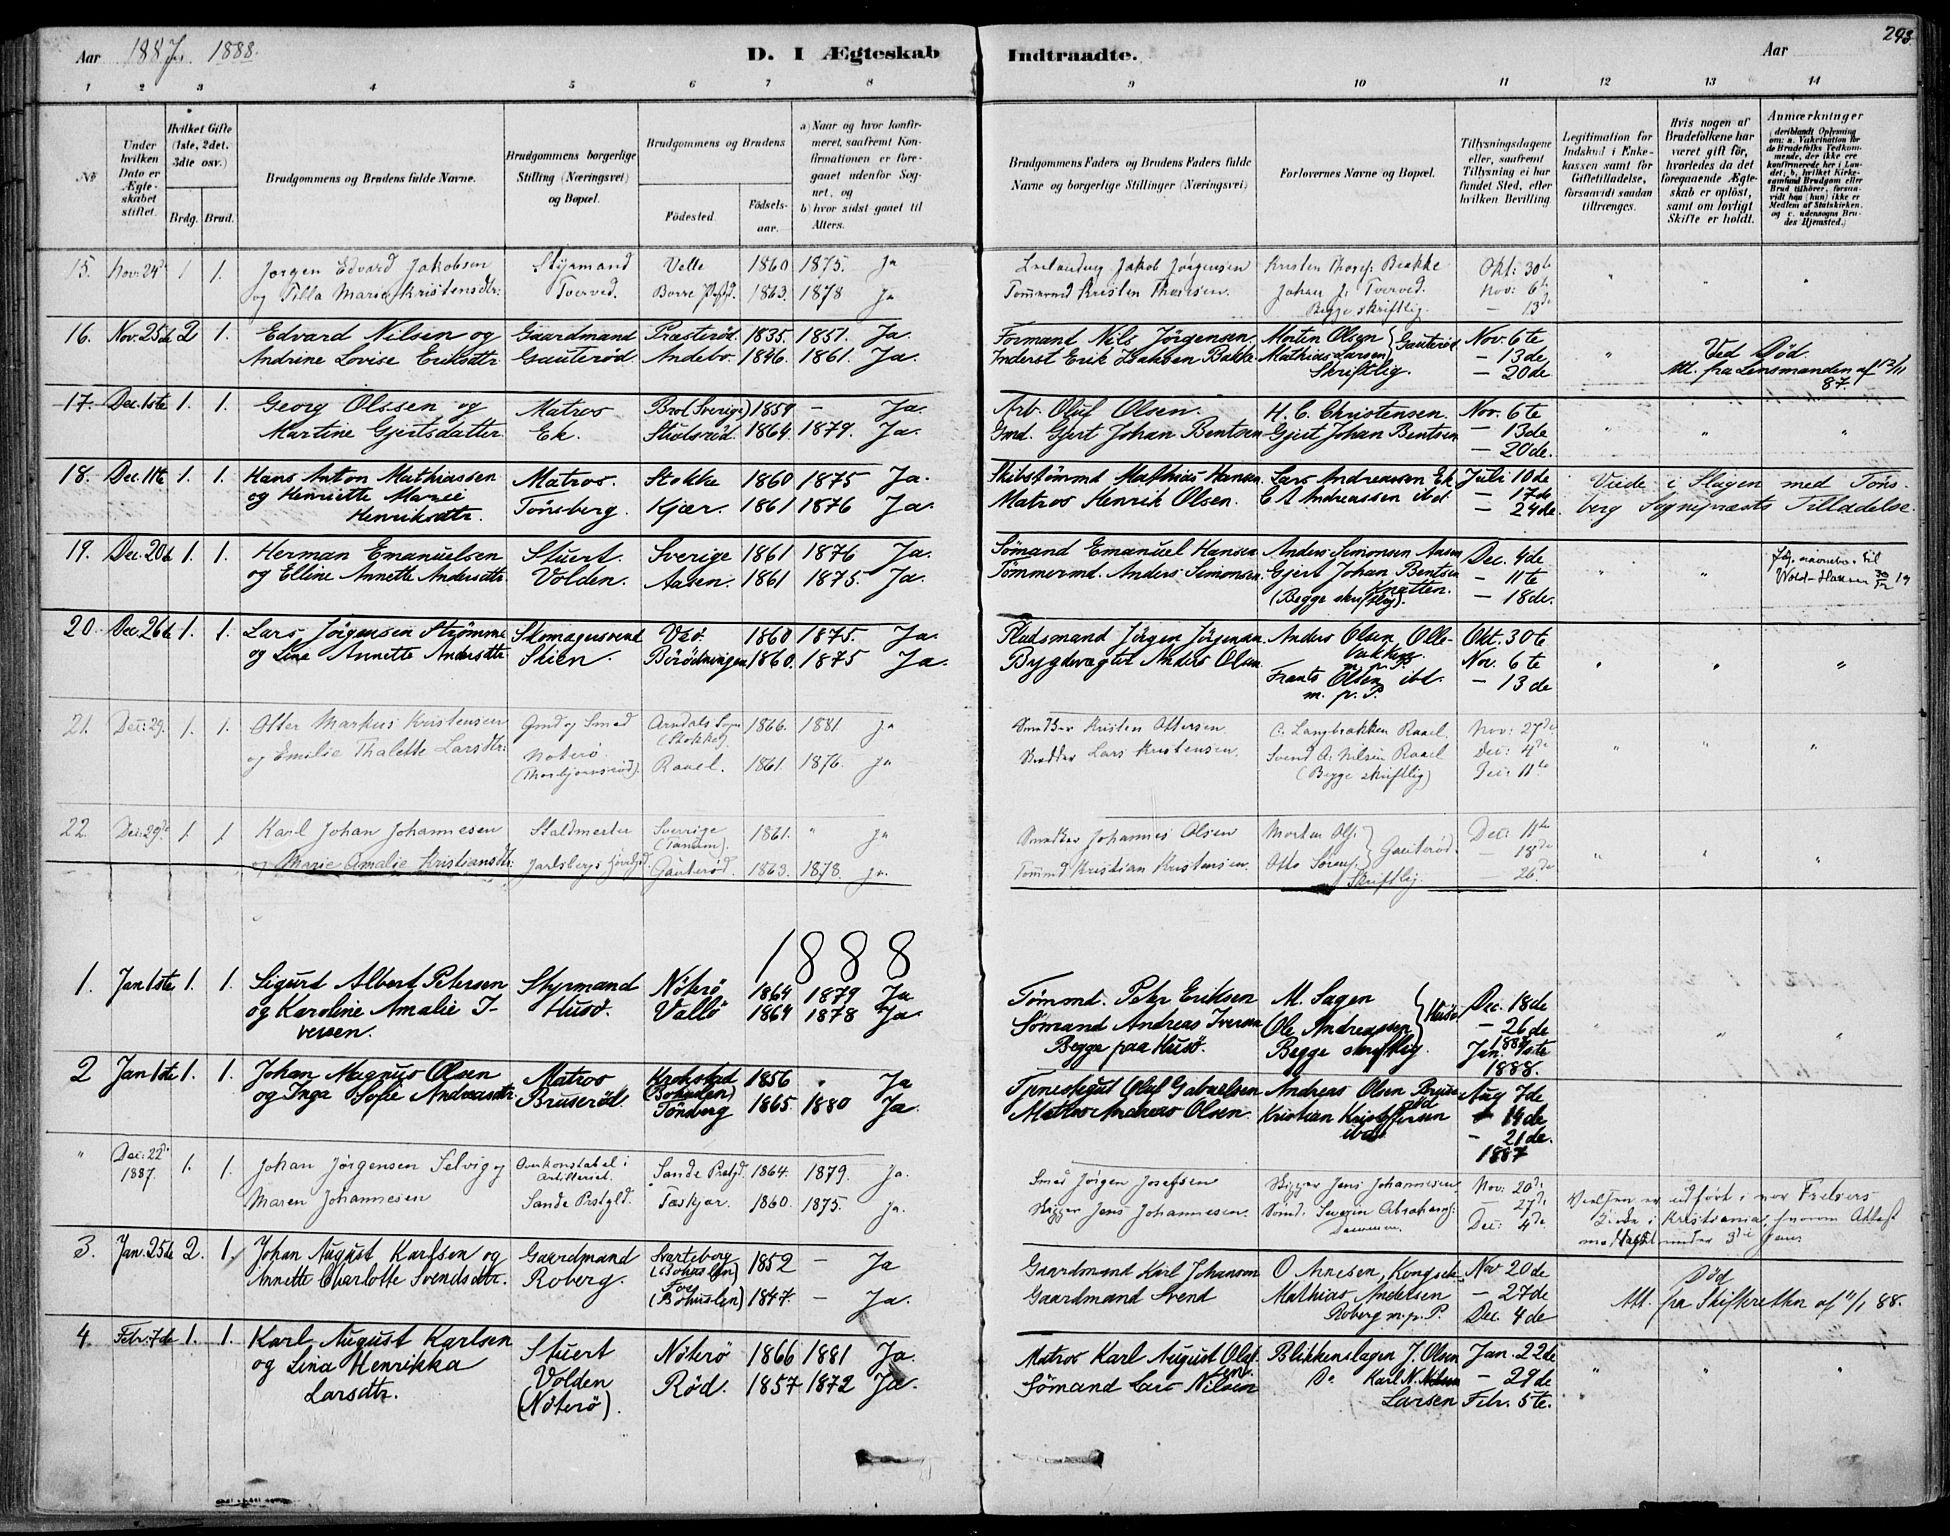 Aar 1887. 1888.
D. I Ægteskab Indtraadte.
Aar
293.
1 2 3 4 5 6 7 8 9 10 11 12 13 14
No
Under hvilken Dato er Ægteskabet stiftet.
Hvilket Gifte (1ste, 2det, 3die osv.)
Brdg. Brud.
Brudgommens og Brudens fulde Navne.
Brudgommens borgerlige Stilling (Næringsvei) og Bopæl.
Brudgommens og Brudens
Fødested.
Fødselsaar.
a) Naar og hvor konfirmeret, saafremt Konfirmationen er foregaaet udenfor Sognet, og
b) hvor sidst gaaet til Alters.
Brudgommens Faders og Brudens Faders fulde Navne og borgerlige Stillinger (Næringsvei)
Forlovernes Navne og Bopæl.
Tillysningsdagene eller, saafremt Tillysning ei har fundet Sted, efter hvilken Bevilling.
Legitimation for Indskud i Enkekassen samt for Giftetilladelse, forsaavidt saadan tiltrænges.
Hvis nogen af Brudefolkene har været gift før, hvorledes da det foregaaende Ægteskab er opløst, samt om lovligt Skifte er holdt.
Anmærkninger
15. Nov. 24de 1 1. Jørgen Edvard Jakobsen Styrmand Velle 1860 1875. Ja Jakob Jørgensen Kristen Thors: Bakke Okt: 30te
og Tilla Marie Kristensdtr: Tverved. Borre Prstgd. 1863. 1878 Ja Tømmermd Kristen Thorsen. Johan J. Tverved. Nov: 6te
Begge skriftlig. — 13de
16. Nov. 25de 2 1. Edvard Nilsen og Gaardmand Præsterød. 1835. 1851. Ja. Formand Nils Jørgensen. Morten Olsen Gauterød Nov. 6te
Andrine Lovise Eriksdtr. Gauterød. Andebo. 1846. 1861. Ja. Inderst Erik Isaksen Bakke Mathias Larsen — 13de Ved Død.
Skriftlig. — 20de Att. fra Lensmanden af 12/11 87.
17. Dec. 1ste 1. 1. Georg Olssen og Matros Bro (Sverige) 1859 — Ja. Arb. Oluf Olsen. H. C. Christensen. Nov. 6te
Martine Gjertsdatter Ek. Stulsrød. 1864 1879. Ja. Gmd. Gjert Johan Bentsen Gjert Johan Bentsen — 13de
— 20de.
18. Dec. 11te 1. 1. Hans Anton Mathiassen Matros. Stokke 1860 1875 Ja. Skibstømmd Mathias Hansen Lars Andreassen Ek Juli 10de Viede i Slagen med Tøns-
og Henriette Marie Tønsberg. Kjær. 1861 1876 Ja. Matros Henrik Olsen. C A Andreassen ibd. — 17de berg Sognepræsts Tilladelse.
Henriksdtr. — 24de
19. Dec. 20de 1. 1. Herman Emanuelsen Stuert. Sverige 1861 1876 Ja. Sømand Emanuel Hansen Anders Simonsen Aasen Dec. 4de
og Elline Annette Andersdtr. Volden. Aasen. 1861 1875. Ja. Tømmermd. Anders Simonsen. Gjert Johan Bentsen — 11te
Knatten. (Begge skriftlig). — 18de.
20. Dec. 26de 1. 1. Lars Jörgensen Strømme Skomagersvend Vaö. 1860 1875. Ja. Pladsmand Jörgen Jörgensen Anders Olsen Olls- Okt. 30te
og Lina Annette Andersdtr Skien. Börödningen 1860. 1875 Ja. Bygdevægter Anders Olsen bakken m. p. P. Nov. 6te
Frants Olsen ibd. m. p. P. — 13de
21. Dec: 29. 1. 1. Otter Markus Kristensen Gmd og Smed Arndals Sogn (Stokke). 1866. 1881. Ja Smedker Kristen Ottersen C. Langbrakken Raael. Nov: 27de
og Emilie Thalette Larsdtr: Nøterø (Thorbjørnsrød). Raael. 1861. 1876. Ja Lars Kristensen. Svend A. Nilsen Raael Dec: 4de
(Begge skriftlig) Dec: 11te
22. Dec: 29de 1. 1 Karl Johan Johannesen Staldmester Sverrige (Tanum). 1861. " Ja Johannes Olsen Morten Ols: Gauterød. Dec: 11te
og Marie Amalie Kristiansdtr: Jarlsbergs Hovedgd. Gauterød. 1863. 1878. Ja. Tømmd Kristian Kristensen. Otto Sørens: — 18de
Skriftlig. — 26de
1888
1. Jan 1ste 1. 1. Sigurd Albert Petersen Styrmand Nöterö 1864 1879 Ja Tömmd. Peter Eriksen M. Sagen Husö Dec. 18de
og Karoline Amalie I- Husö. Vallö 1864 1878 Ja. Sömand Andreas Iversen Ole Andreassen — 26de 1887
versen. Begge paa Husö. Begge skriftlig. Jan. 1ste 1888.
2 Jan 1ste 1. 1. Johan Magnus Olsen Matros Krokstad (Bohuslen) 1856 " Ja Tjenestegut Oluf Gabrielsen Andreas Olsen Bruse- Aug 7de
og Inga Sofie Andreasdtr Bruserød. Tönsberg 1865. 1880 Ja. Matros Andreas Olsen. röd Kristian Kristoffersen ibd. — 14de
— 21de. 1887
" Dec: 22de 1887. 1. 1. Johan Jørgensen Selvig og Overkonstabel i Artilleriet. Sande Prstgd. 1864. 1879. Ja. Jørgen Josefsen Skipper Jens Johannesen. Nov: 20de Vielsen er udført i vor Frelsers
Maren Johannesen Sande Prstgld. Taskjær. 1860. 1875. Ja. Skipper Jens Johannesen. Sømd. Severin Abrahams: — 27de Kirke i Kristiania, hvorom Attest
Dec: 4de modtaget under 3die Janr.
3. Jan. 25de 2. 1. Johan August Karlsen og Gaardmand Svarteborg (Bohuslen) 1852 — Ja Gaardmand Karl Johansen O Arnesen, Kongsek. Nov 20de Död
Annette Charlotte Svendsdtr. Roberg. Foss (Bohuslen) 1847. — Ja. Gaardmand Svend Mathias Andersen — 27de Att. fra Skifteretten af 11/1 88.
Roberg m. p. P. Dec. 4de
4. Febr. 7de 1. 1. Karl August Karlsen Stuert Nöterö 1866 1881 Ja. Matros Karl August Olsen. Blikkenslager J. Olsen Jan. 22de
og Lina Henrikka Volden Röd. 1857 1872 Ja. Sömand Lars Nilsen Do Karl N. — 29de
Larsdtr. (Nöterö). Larsen Febr. 5te.